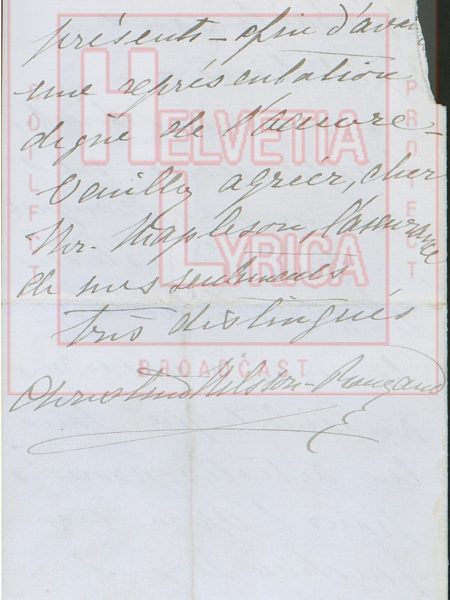 présents – afin d'avoir
une représentation
digne de l'œuvre –
Veuillez agréer, cher
Mr. Mapleson, l'assurance
de mes sentiments
très distingués
Christine Nilsson-Rouzaud
HELVETIA
LYRICA
BROADCAST
PROTECT